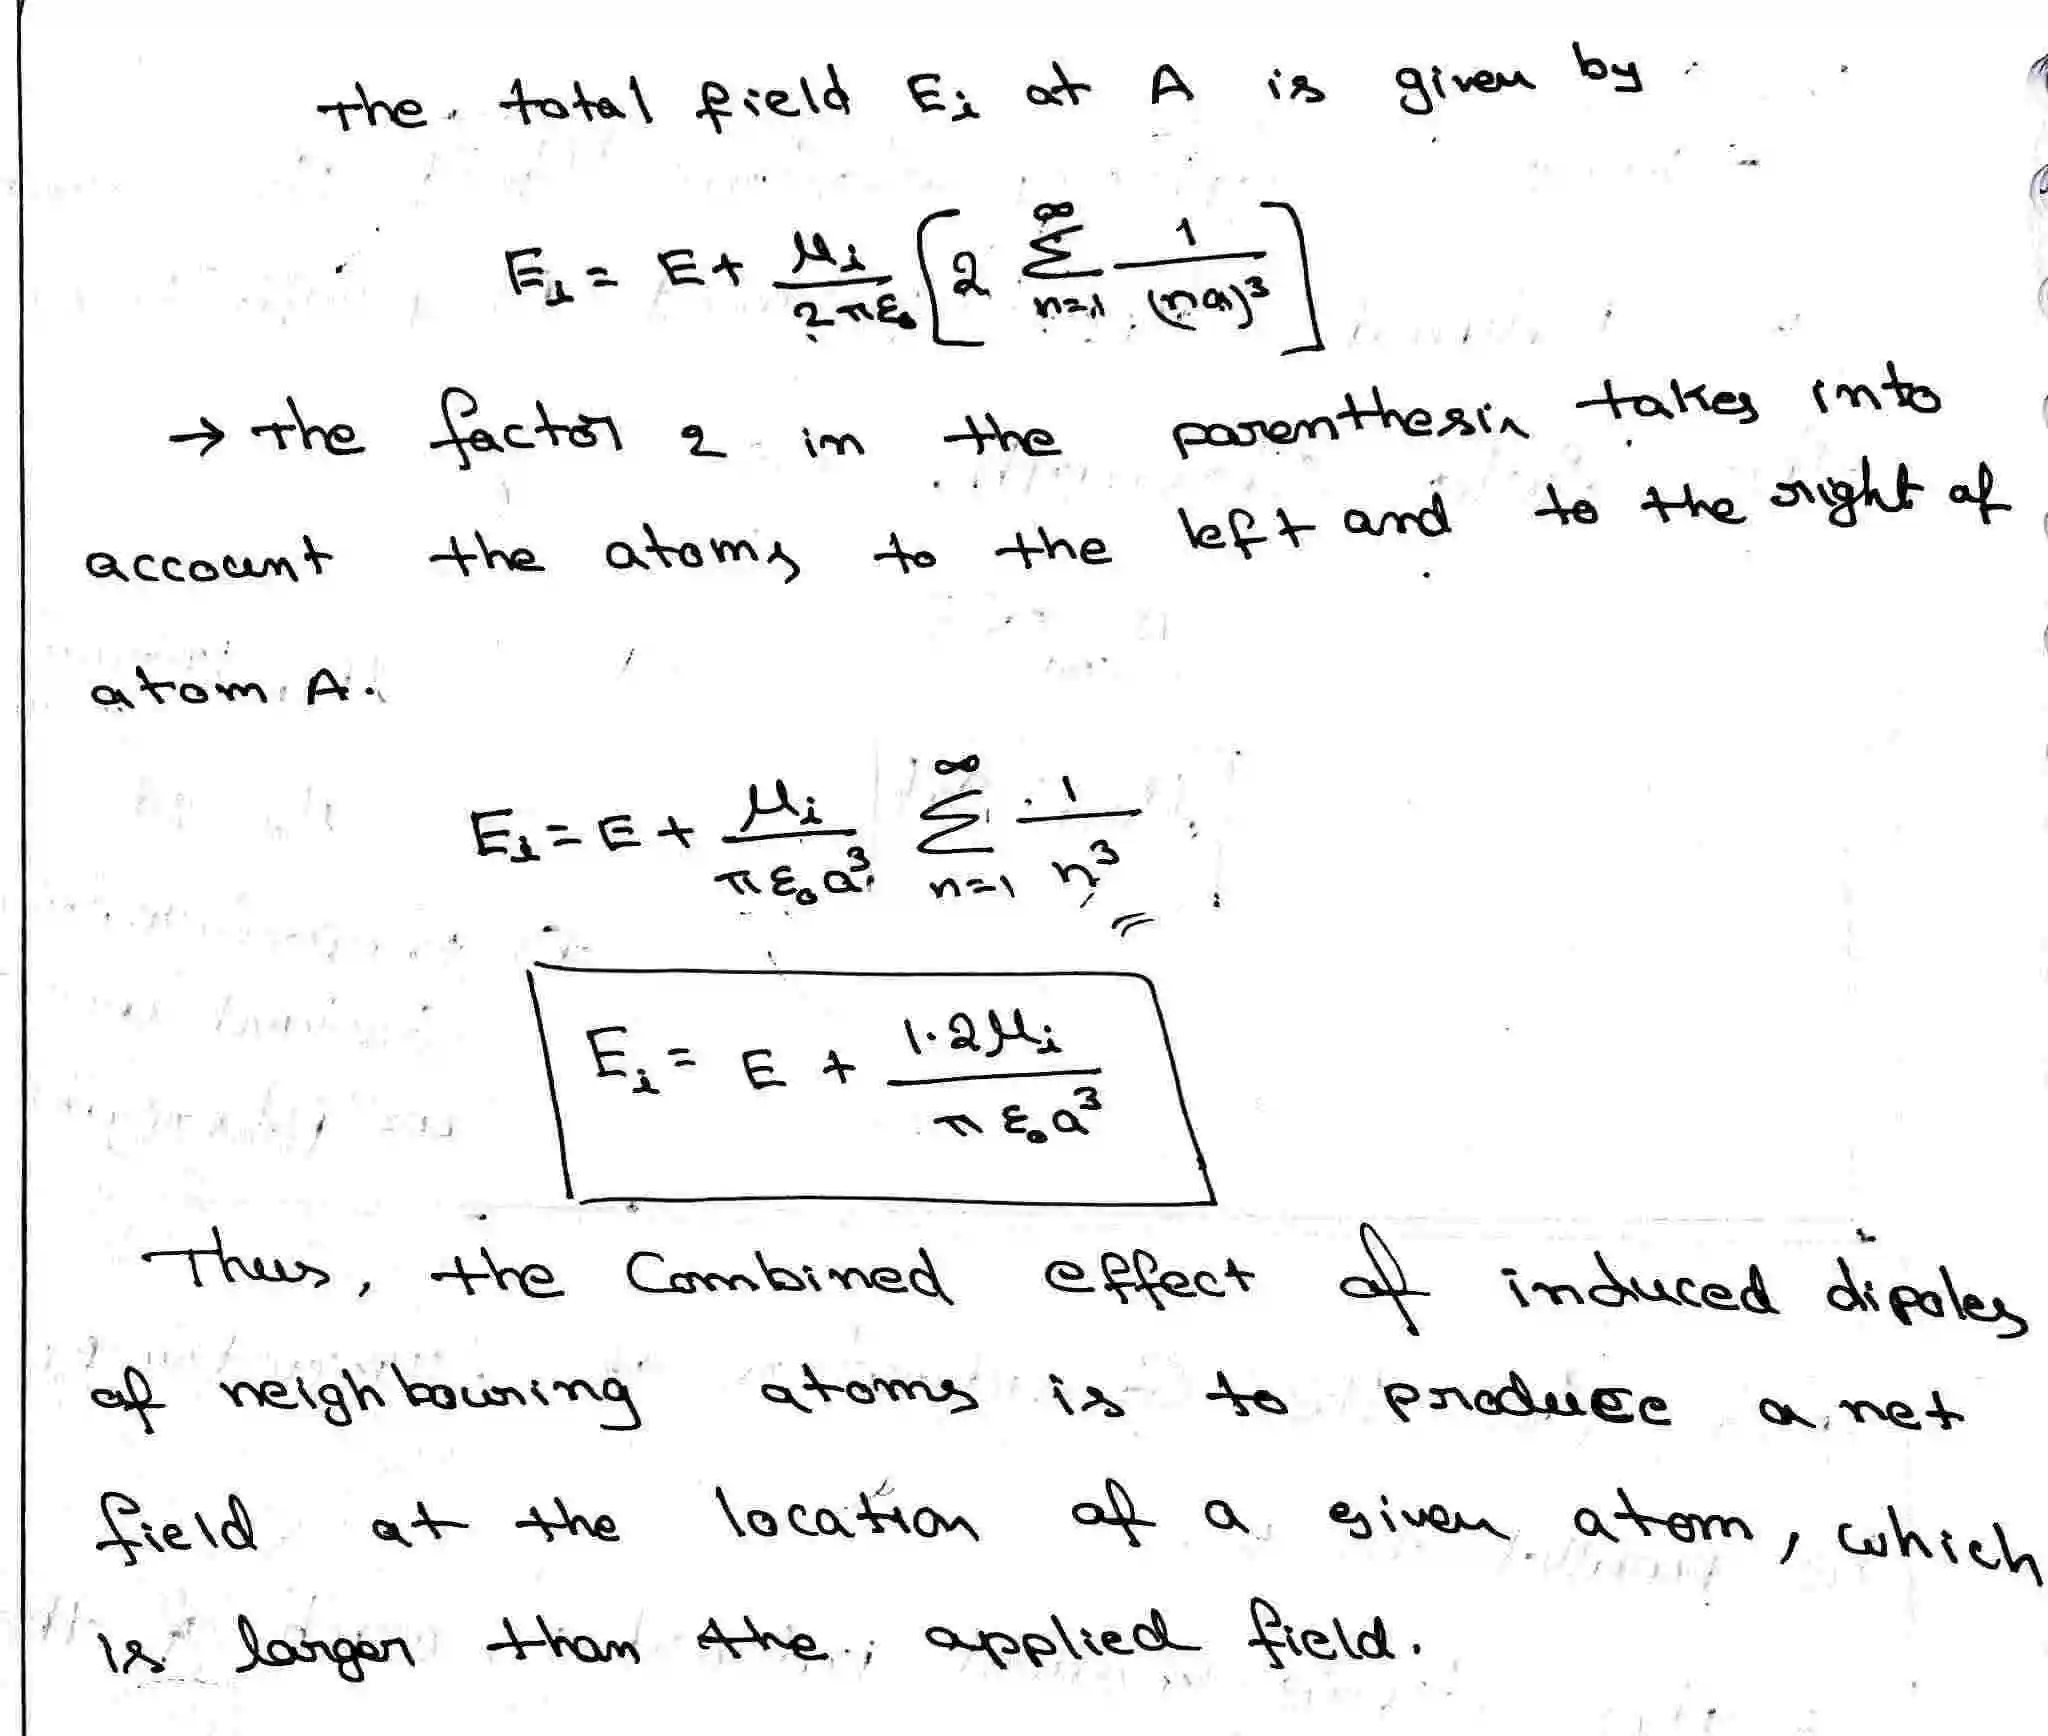 The total field Ei at A is given by
Ei = E + μi/2πε₀ [2 ∑_{n=1}^{∞} 1/(na)³]
→ The factor 2 in the parenthesis takes into
account the atoms to the left and to the right of
atom A.
Ei = E + μi/πε₀a³ ∑_{n=1}^{∞} 1/n³
Ei = E + 1.2μi/πε₀a³
Thus, the Combined effect of induced dipoles
of neighbouring atoms is to produce a net
field at the location of a given atom, which
is larger than the applied field.